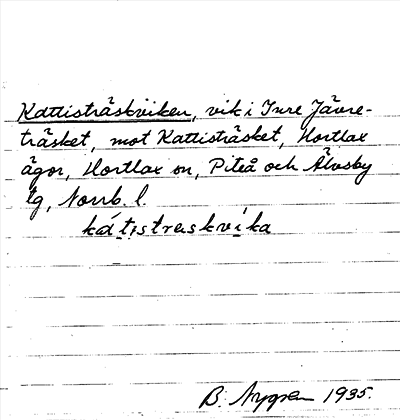 Kattisträskviken, vik i Inre Jävre-
träsket, mot Kattisträsket, Hortlax
ägor, Hortlax sn, Piteå och Älvsby
tg, Norrb. l.
kátistraskvika
B. Nygren 1935.